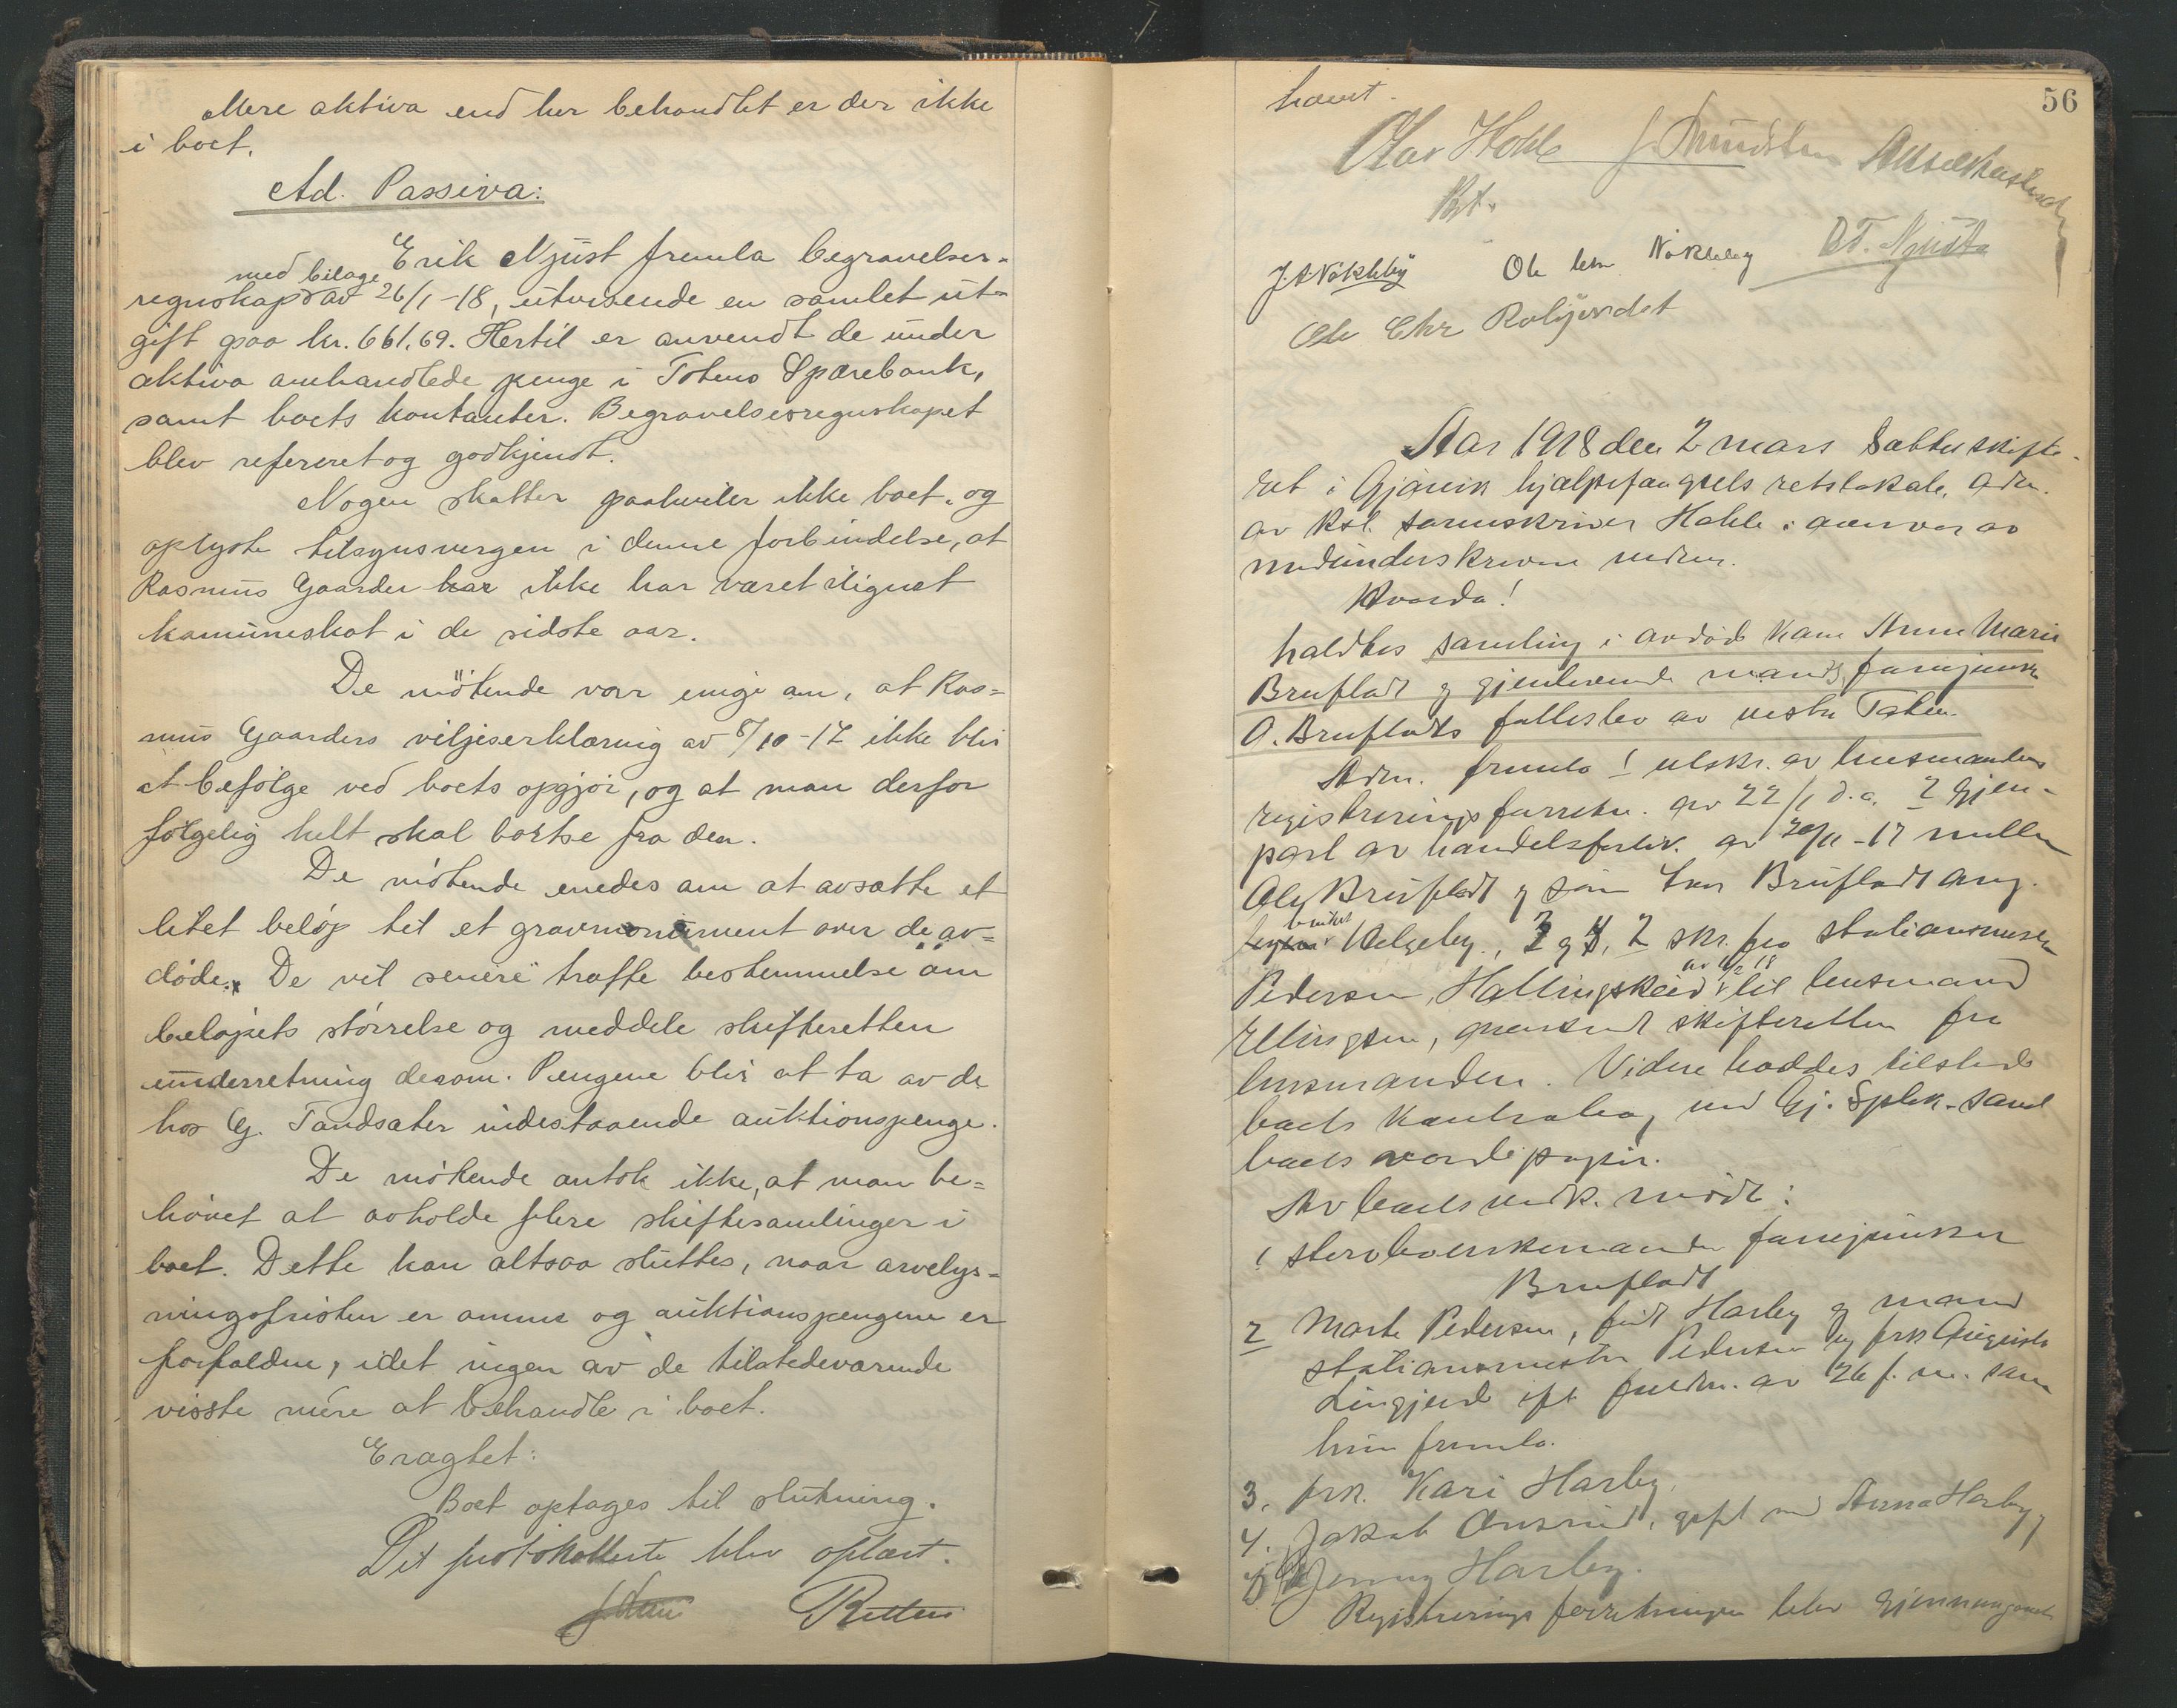 Mere aktiva end her behandlet er der ikke
i boet.
Ad. Passiva:
Erik Njúst fremla begravelses-
med bilage
regnskap av 26/1-18, utvisende en samlet ut-
gift paa kr. 661,69. Hertil er anvendt de under
aktiva omhandlede penge i Totens Sparebank,
samt boets kontanter. Begravelsesregnskapet
blev refereret og godkjendt.
Nogen skatter paahviler ikke boet, og
oplyste tilsynsvergen i denne forbindelse, at
Rasmus Gaarder har ikke har været ilignet
komuneskat i de sidste aar.
De møtende var enige om, at Ras=
mus Gaarders viljeserklæring av 8/10-17 ikke blir
at befølge ved boets opgjør, og at man derfor
følgelig helt skal bortse fra den.
De møtende enedes om at avsætte et
litet beløp til et gravmonument over de av=
døde. De vil senere træffe bestemmelse om
beløpets størrelse og meddele skifteretten
underretning desom. Pengene blir at ta av de
hos G. Tandsæter indestaaende auktionspenge.
De møtende antok ikke, at man be=
høvet at avholde flere skiftesamlinger i
boet. Dette kan altsaa sluttes, naar arvelys=
ningsfristen er omme og auktionspengene er
forfaldne, idet ingen av de tilstedeværende
visste mere at behandle i boet.
Eragtet:
Boet optages til slutning.
Det protokollerte blev oplæst.
Retten
56
hævet.
Olav Hohle
Kst.
J. A. Nøkleby Ole Nøkleby O. T. Njústa
Ole Chr
Aar 1918 den 2 mars sattes skifte-
ret i Gjøvik hjælpefængsels retslokale, adm.
av kst. sorenskriver Hohle i nærvær av
medunderskrevne vidner.
Hvorda!
holdtes samling i avdøde kone Anne Marie
Brufladt og gjenlevende mands, fanejunker
O. Brufladts fællesbo av vestre Toten.
Adm. fremla 1 utskr. av lensmandens
registreringsforretn. av 22/1 d.a. 2 gjen-
part av handelsforliv. av 20/11-17 mellem
Ole Brufladt og søn Brufladt ang.
Helgeby, 3 og 4, 2 skr. fra stationsmester
av 11/2 18
Pedersen, Hallingskeid til lensmand
Ellingsen, oversendt skifteretten fra
lensmanden. Videre haddes tilstede
boets kontrabog med Gj. Spbk. samt
boets værdipapir.
Av boets vedk. mødte:
1 sterboenkemanden fanejunker
Brufladt
2 Marte Pedersen, født Harby og mand
stationsmester Pedersen og frk Auguste
Lingjerde ifl. fuldm. av 26 f. m. som
hun fremla.
3. frk. Kari Harby.
4. Jakob gift med Anna Harby,
5 Jenny Harby.
Registreringsforretningen blev gjennemgaaet